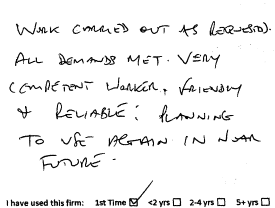 WORK CARRIED OUT AS REQUESTED.
ALL DEMANDS MET. VERY
COMPETENT WORKER, FRIENDLY
& RELIABLE: PLANNING
TO USE AGAIN IN NEAR
FUTURE.
I have used this firm: 1st Time ☑ <2 yrs ☐ 2-4 yrs ☐ 5+ yrs ☐